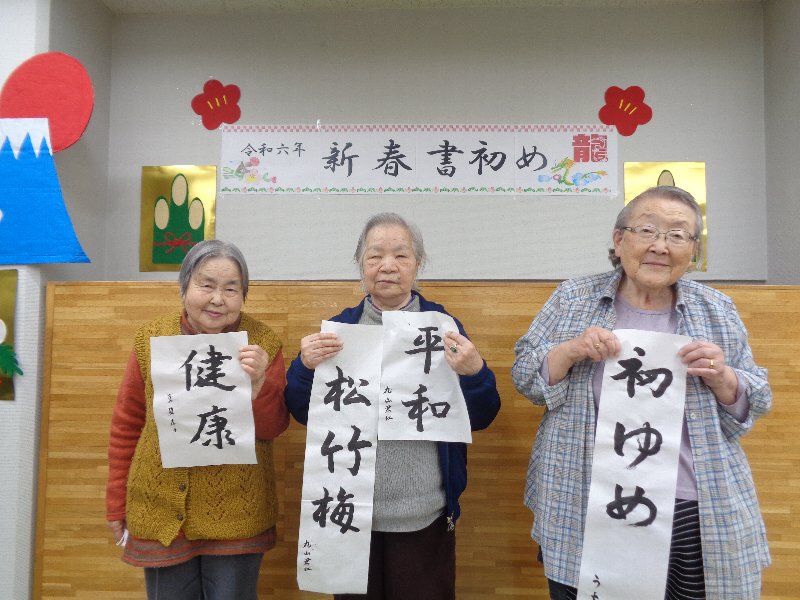 令和六年 新春書初め 龍
健康
松竹梅
丸山
平和
丸山
初ゆめ